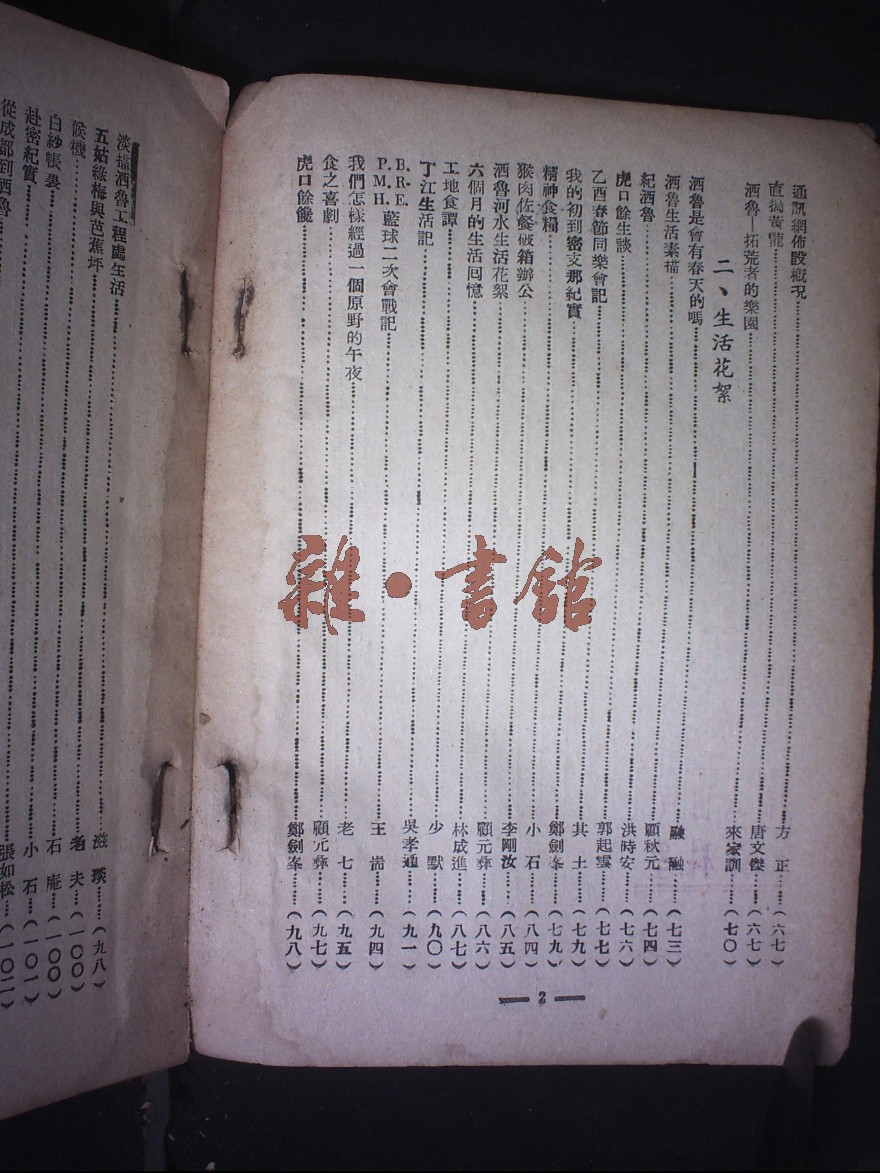 通訊網佈設概況……方　正……(六七)
直搗黃龍……唐文傑……(六七)
洒魯—拓荒者的樂園……來家訓……(七〇)
二、生活花絮
洒魯是會有春天的嗎……融　融……(七三)
洒魯生活素描……顧秋元……(七四)
紀洒魯……洪時安……(七六)
虎口餘生談……郭起雲……(七七)
乙酉春節同樂會記……其　土……(七九)
我的初到密支那紀實……鄭劍峯……(七九)
精神食糧……小　石……(八四)
猴肉佐餐破箱辦公……李剛汝……(八五)
洒魯河水生活花絮……顧元彝……(八六)
六個月的生活回憶……林成進……(八七)
工地食譚……少　默……(九〇)
丁江生活記……吳孝通……(九一)
B.R.E. P.M.H. 籃球二次會戰記……王　耑……(九四)
我們怎樣經過一個原野的午夜……老　七……(九五)
食之喜劇……顧元彝……(九七)
虎口餘饞……鄭劍峯……(九八)
— 2 —
淡描洒魯工程處生活……滋　瑛……(九八)
五姑綠梅與芭蕉坪……老　夫……(一〇〇)
候機……石　庵……(一〇〇)
白紗帳裏……小　石……(一〇一)
赴密紀實……張如松……(一〇二)
從成都到洒魯
雜·書館